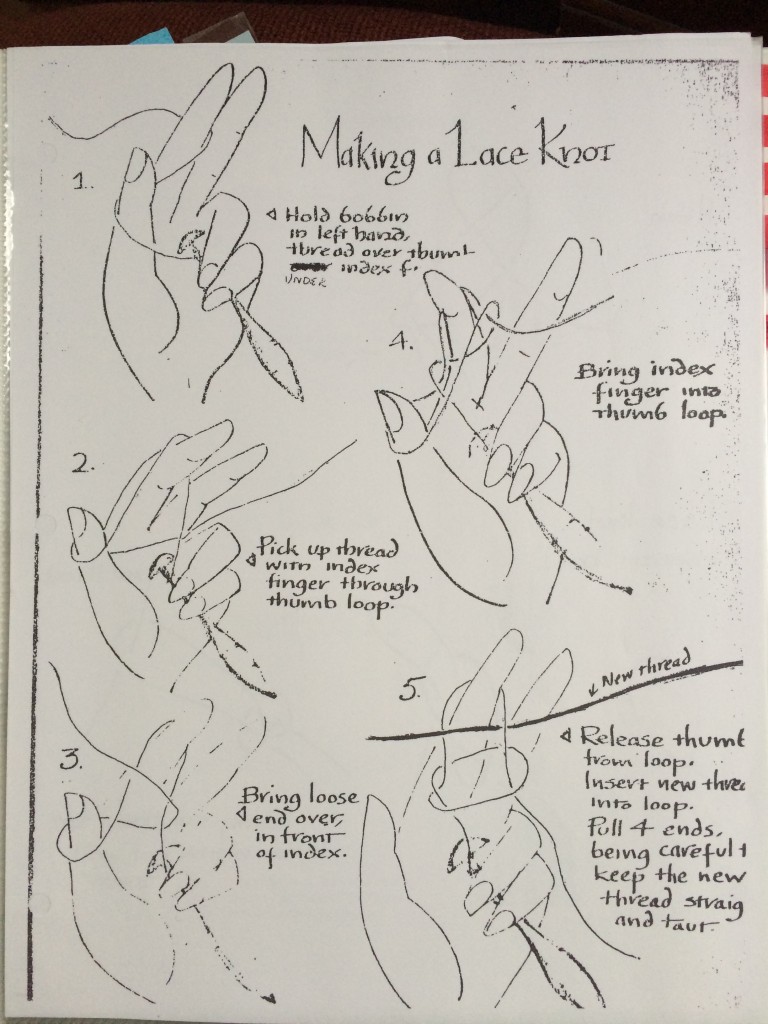 Making a Lace Knot
1.
◁ Hold bobbin
in left hand,
thread over thumb
index f.
UNDER
2.
◁ Pick up thread
with index
finger through
thumb loop.
3.
Bring loose
◁ end over,
in front
of index.
4.
Bring index
finger into
thumb loop.
5.
New thread
◁ Release thumb
from loop.
Insert new threa
into loop.
Pull 4 ends,
being careful t
keep the new
thread straig
and taut.